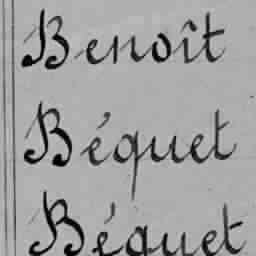 Benoît
Béquet
Béquet